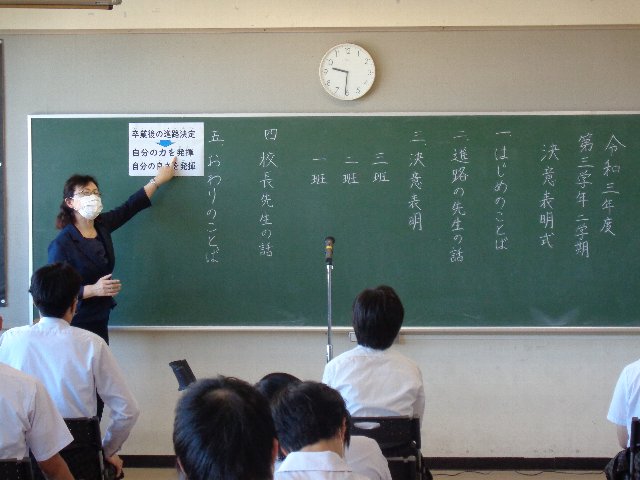 令和三年度
第三学年二学期
決意表明式
一 はじめのことば
二 進路の先生の話
三 決意表明
三班
二班
一班
四 校長先生の話
五 おわりのことば
卒業後の進路決定
自分の力を発揮
自分の良さを発揮